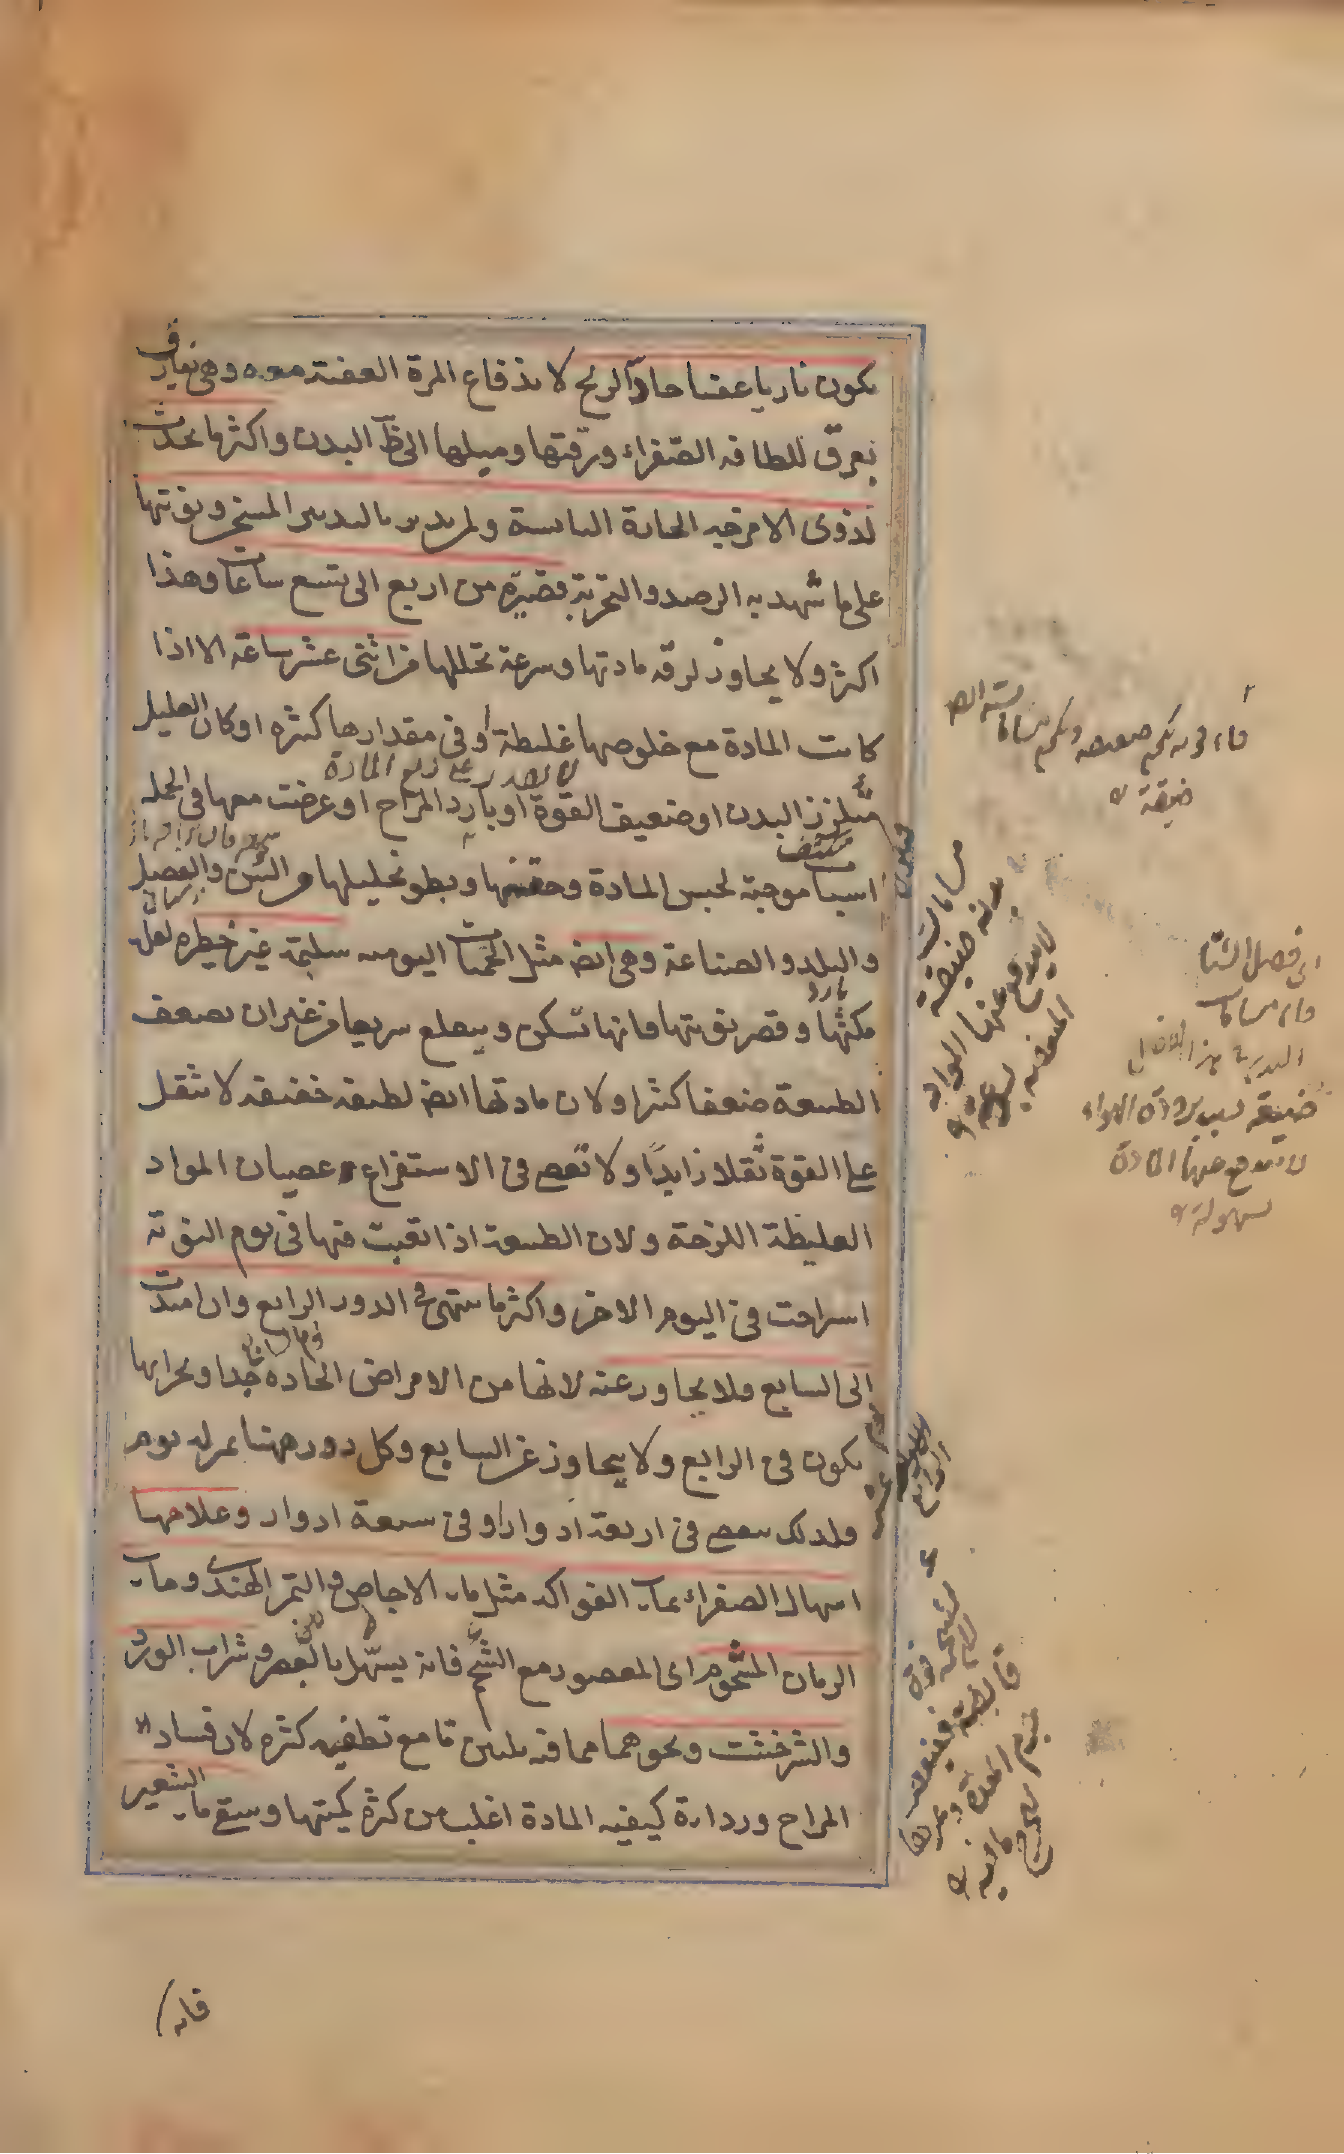 يكون ناريا عفنا حاد الريح لاندفاع المرة العفنة معه وهى تفارق
بعرق للطافه الصفراء ورقتها وميلها الى ظ البدن واكثرها تحدث
لذوى الامزجه الحارة اليابسة ولمن يدبر بالتدبير المسخن ونوبتها
على ما شهد به الرصد والتجربة قصيرة من اربع الى تسع ساعات وهذا
اكثر ولا يجاوز لرقه مادتها وسرعة تحللها من اثنى عشر ساعة الا اذا
كانت المادة مع خلوصها غليظة او فى مقدارها كثره او كان العليل
متلزز البدن او ضعيف القوة او بارد المزاج او عرضت معها فى الجلد
اسبابا موجبة لحبس المادة وحقنها وبطو تحليلها والسن والفصل
والبلد والصناعة وهى ايض مثل الحميات اليوميه سليمة غير خطيره لقلة
مكثها وقصر نوبتها فانها تسكن ويقلع سريعا من غير ان يضعف
الطبيعة ضعفا كثيرا ولان مادتها ايض لطيفه خفيفه لا تثقل
على القوة ثقلا زايدا ولا تعصى فى الاستفراغ عصيان المواد
الغليظة اللزجة ولان الطبيعة اذا تعبت فيها فى يوم النوبة
استراحت فى اليوم الاخر واكثر ما ينتهى فى الدور الرابع وان امتدت
الى السابع فلا يجاوز عنه لانها من الامراض الحاده جدا وبحرانها
يكون فى الرابع ولا يجاوز عن السابع وكل دور منها بمنزله يوم
ولذلك ينقضى فى اربعة ادوار او فى سبعة ادوار وعلاجها
اسهال الصفراء بماء الفواكه مثل ماء الاجاص والتمر الهندى وماء
الرمان المشحوم اى المعصور مع الشحم فانه يسهل بالعصر وشراب الورد
والشرخشت ونحوهما مما فيه تليين ما مع تطفيه كثره لان فساد
المزاج ورداءة كيفيه المادة اغلب من كثرة كميتها وسقى ماء الشعير
متكثف
بارد
ضيقة
اى فصل الشتا
فان مسامات
البدن فى هذا الفصل
ضيقة بسبب برودة الهواء
لا يندفع عنها المادة
بسهولة
مسامات
بدنه ضيقة
لا يندفع عنها المواد
المتعفنه بسرعة
فانه